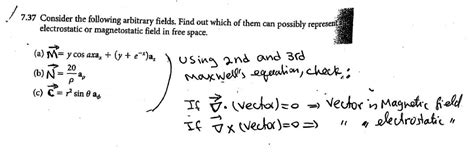 7.37 Consider the following arbitrary fields. Find out which of them can possibly represent
electrostatic or magnetostatic field in free space.
(a) M = y cos axaₓ + (y + e⁻ˣ)a_z
(b) N = 20/ρ a_ρ
(c) C = r² sin θ a_ϕ
using 2nd and 3rd
Maxwell's equation, check,:
If ∇⃗. (vector)=0 ⇒ Vector is Magnetic field
If ∇⃗ x (vector)=0 ⇒ " " electrostatic "